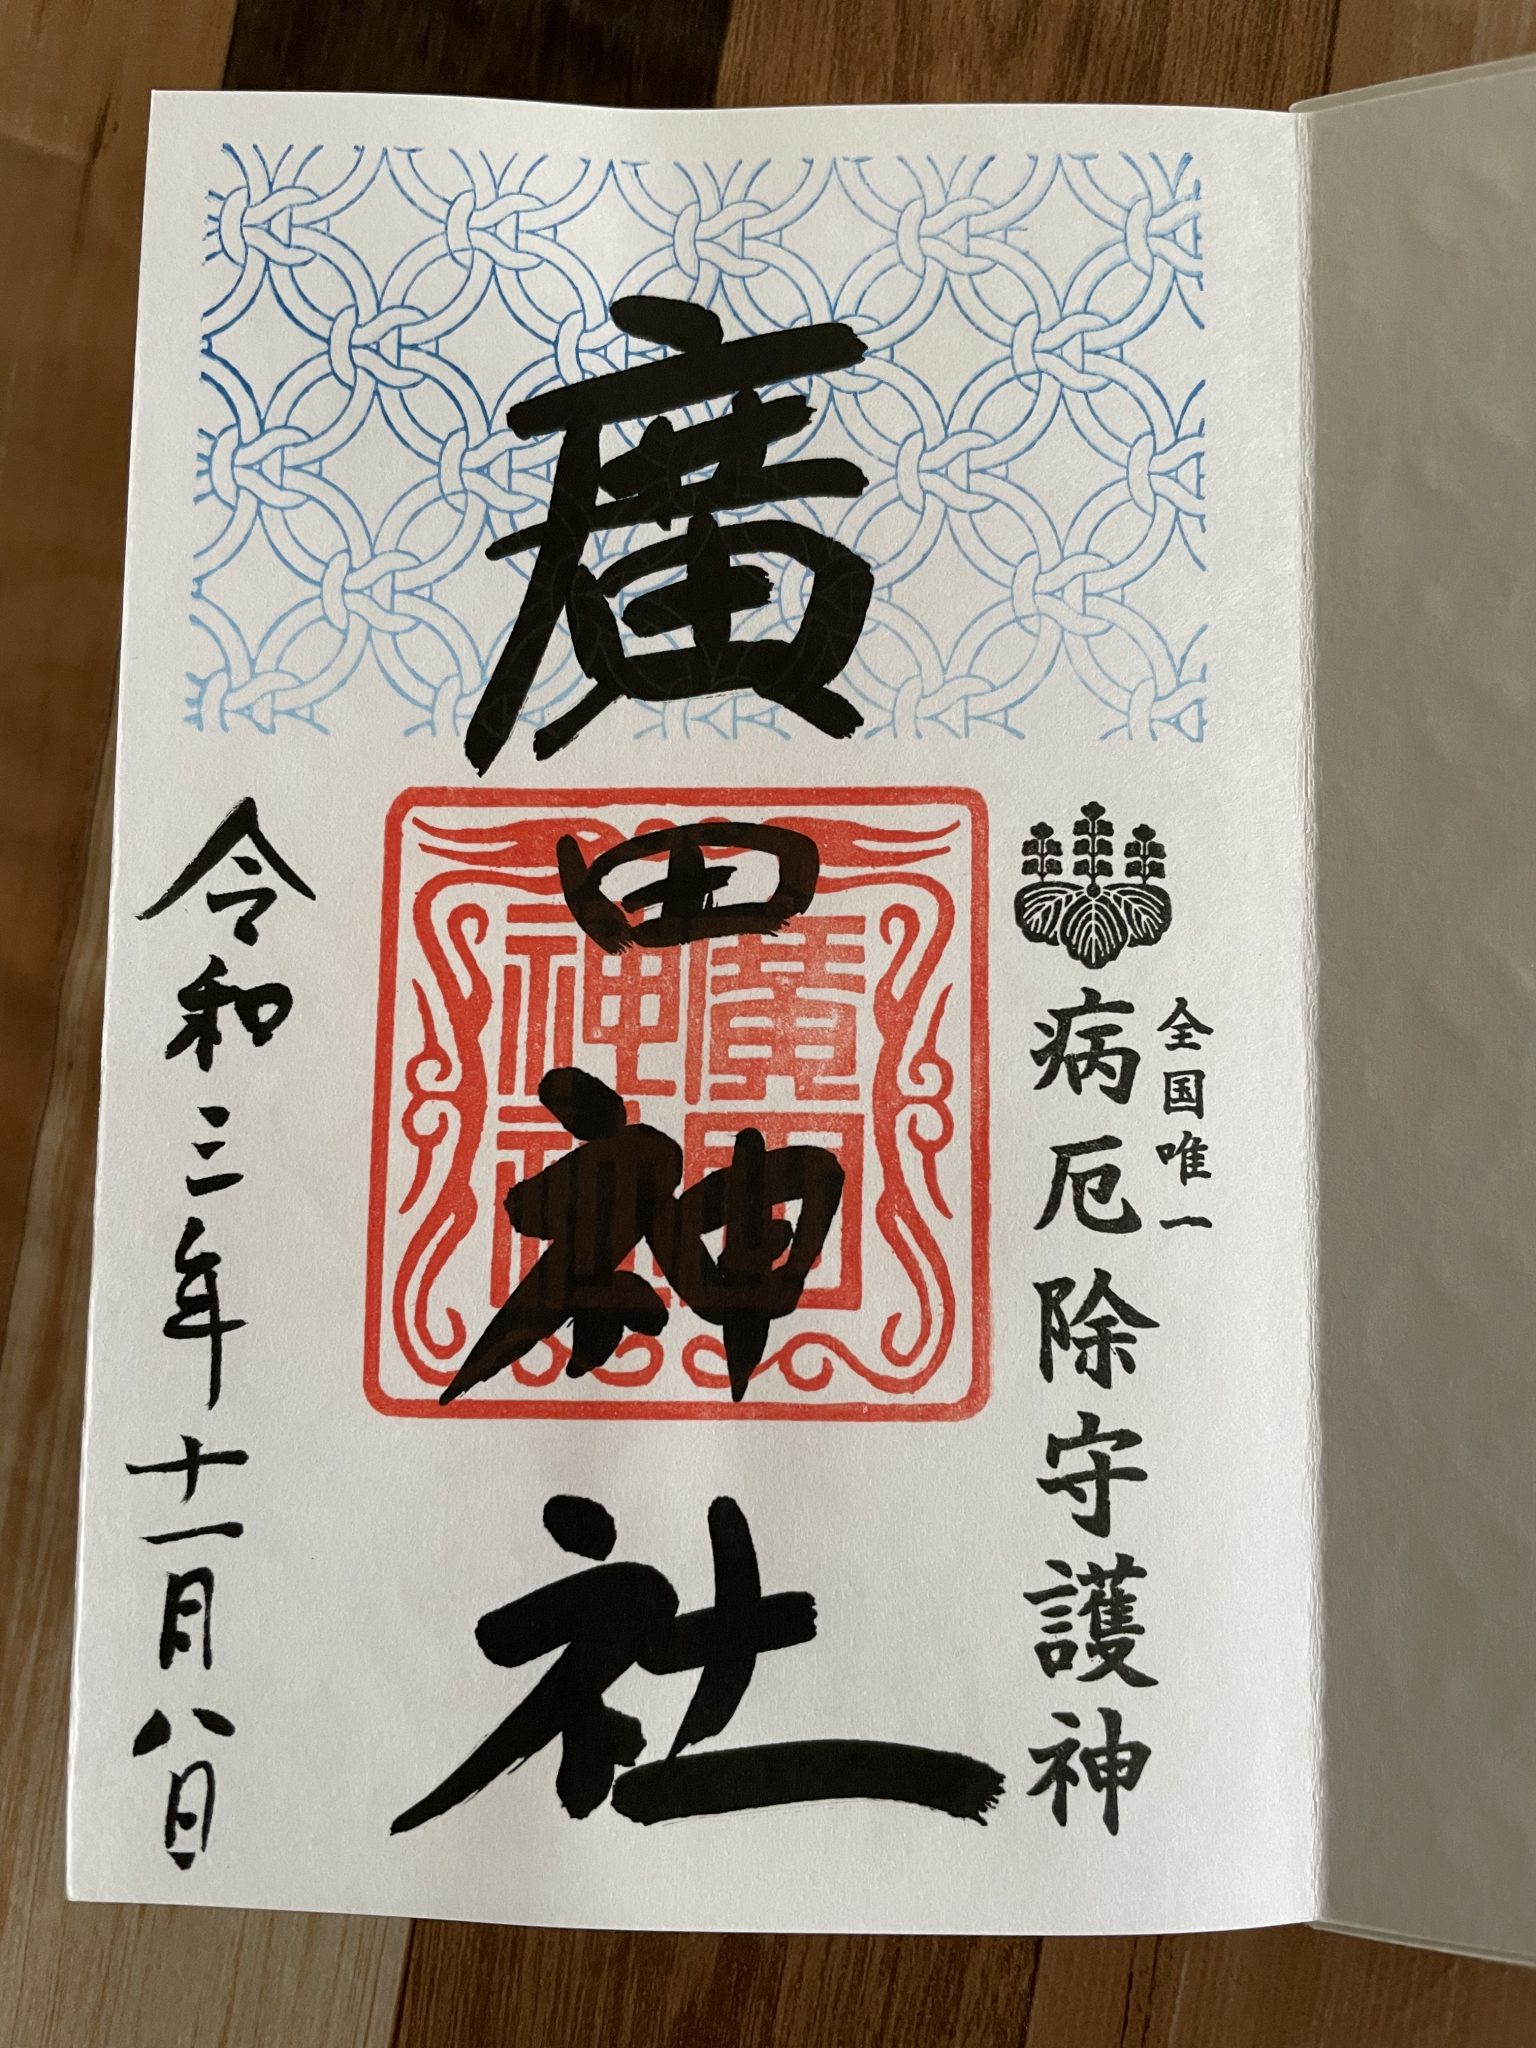 全国唯一
病厄除守護神
廣田神社
廣田神社
令和三年十一月八日